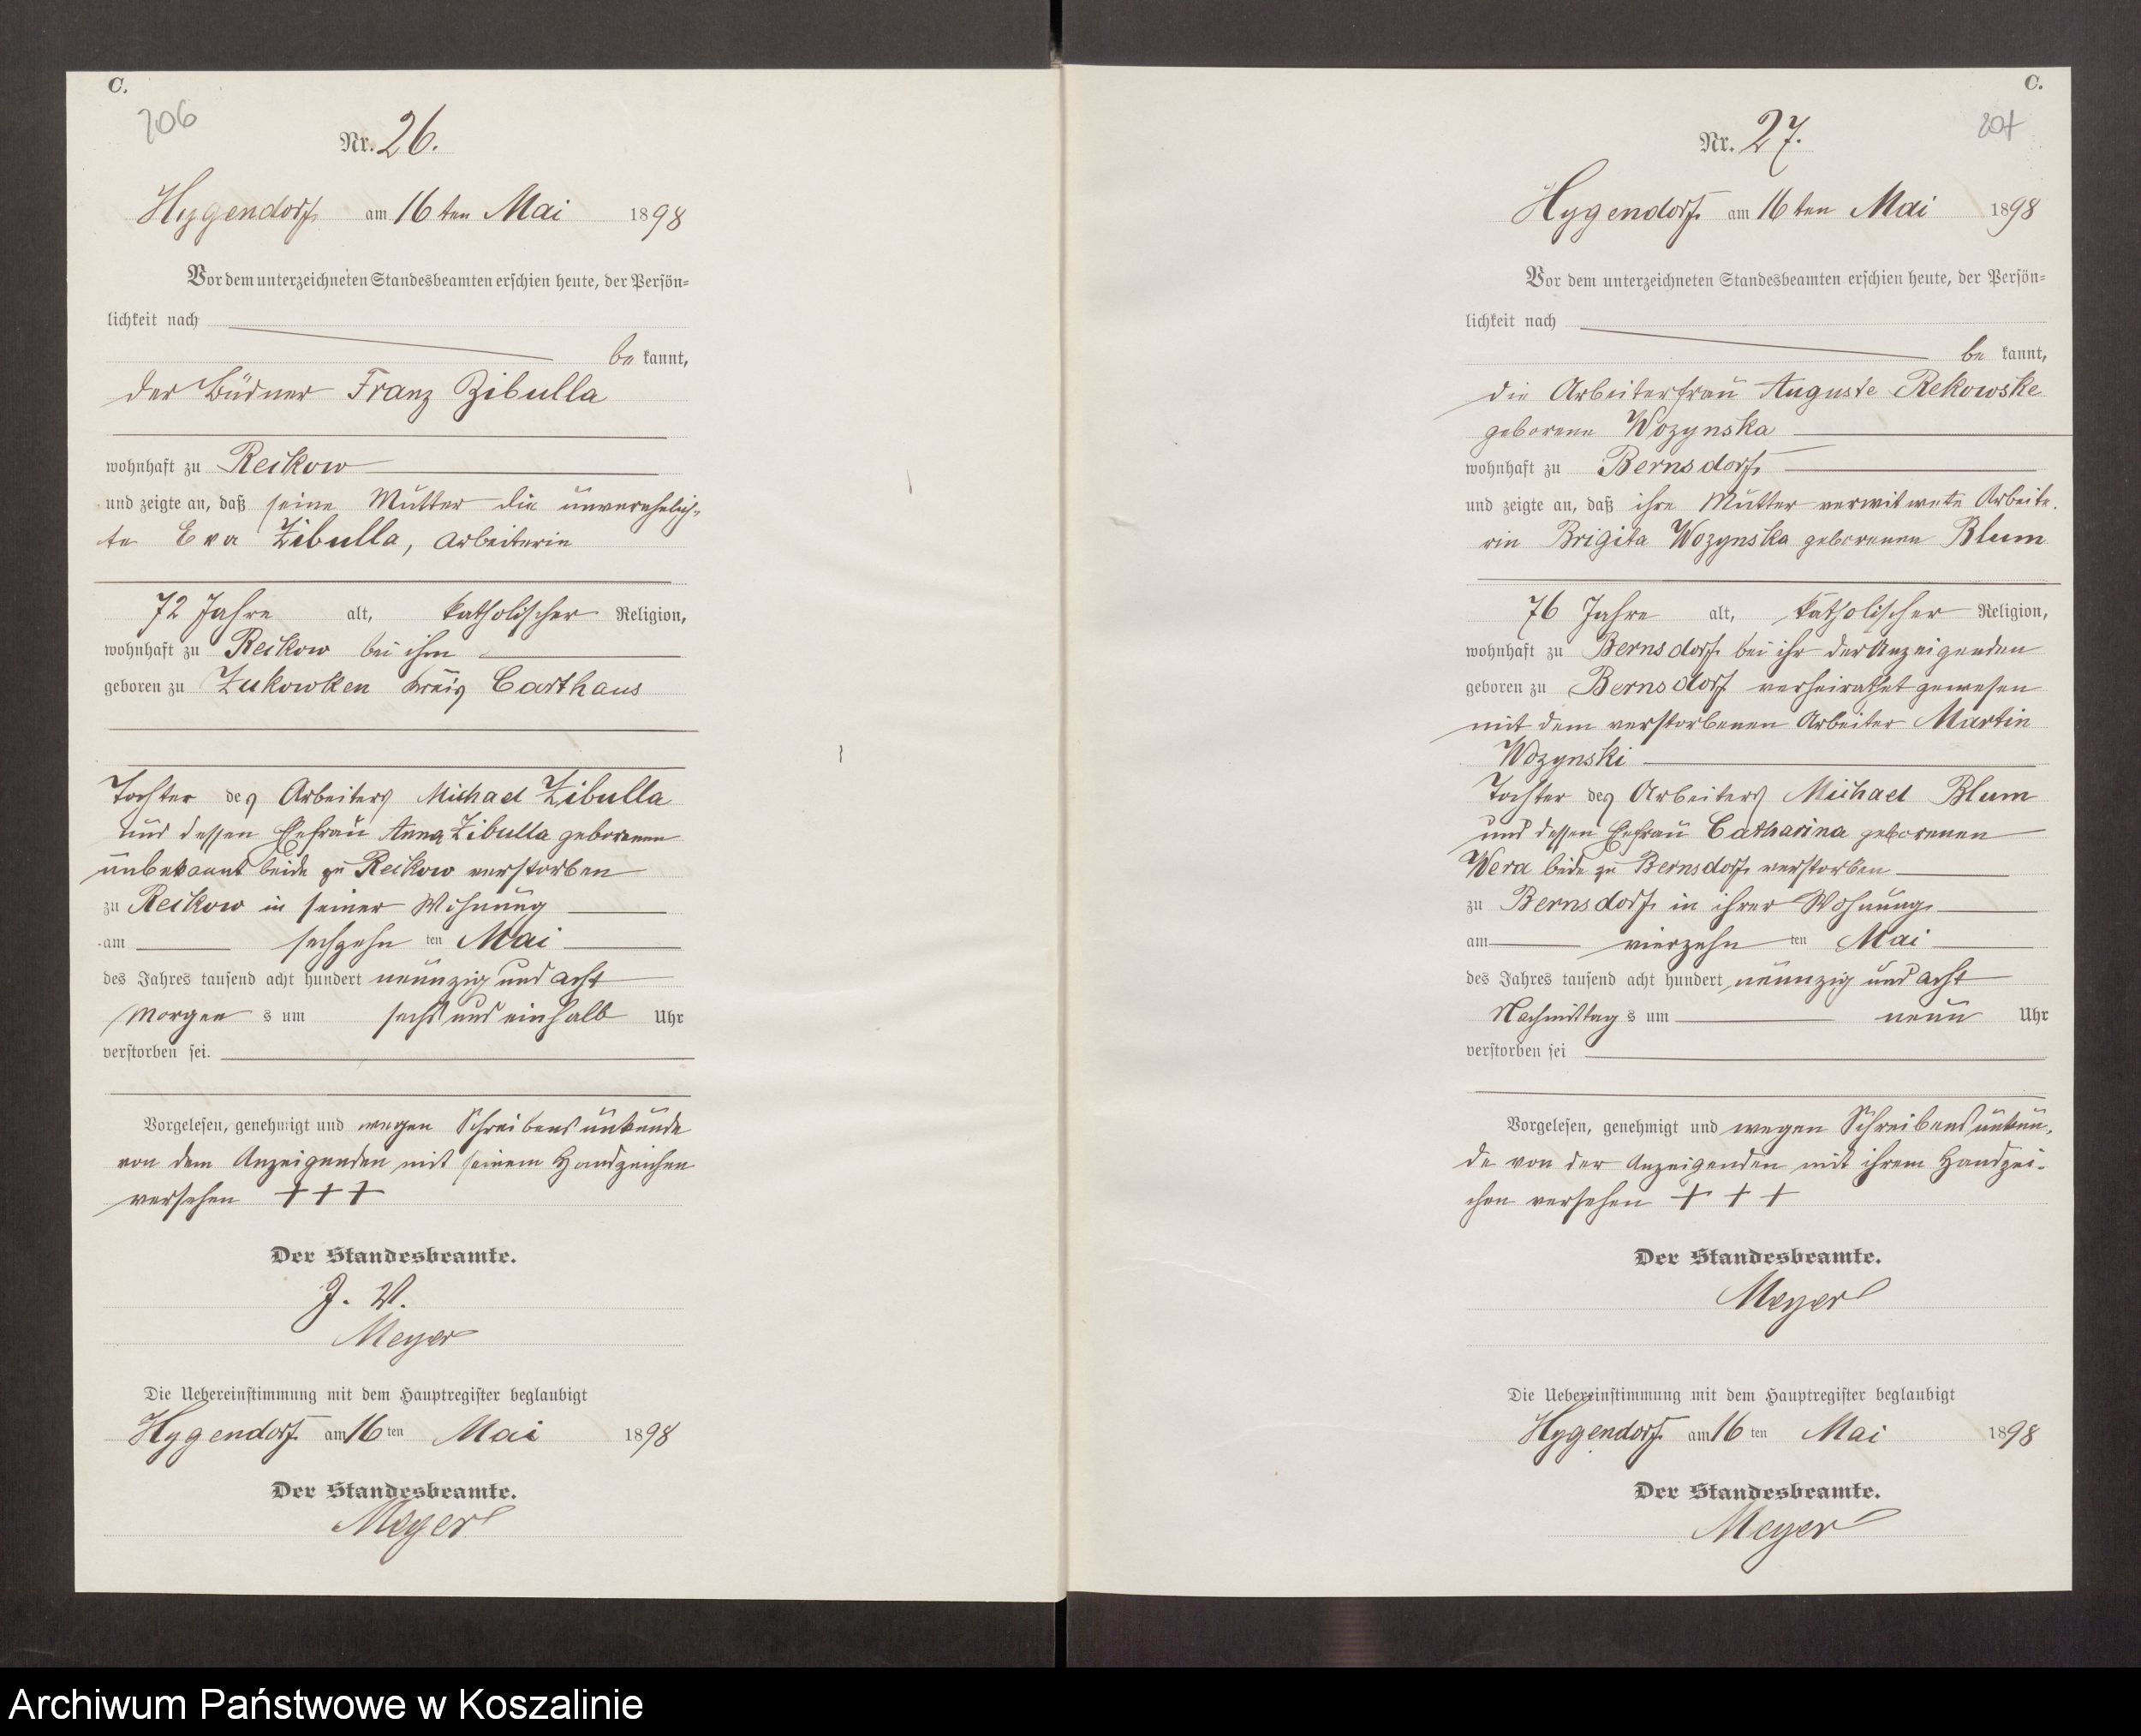 C.
206
Nr. 26.
Hygendorf am 16ten Mai 1898
Vor dem unterzeichneten Standesbeamten erschien heute, der Persön-
lichkeit nach
be kannt,
der Büdner Franz Zibulla
wohnhaft zu Reckow
und zeigte an, daß seine Mutter die unverehelich-
te Eva Zibulla, Arbeiterin
72 Jahre alt, katholischer Religion,
wohnhaft zu Reckow bei ihm
geboren zu Zukowken Kreis Carthaus
Tochter des Arbeiters Michael Zibulla
und dessen Ehefrau Anna Zibulla geborenen
unbekannt beide zu Reckow verstorben
zu Reckow in seiner Wohnung
am sechzehn ten Mai
des Jahres tausend acht hundert neunzig und acht
Morgen s um sechs und einhalb Uhr
verstorben sei.
Vorgelesen, genehmigt und wegen Schreibensunkunde
von dem Anzeigenden mit seinem Handzeichen
versehen +++
Der Standesbeamte.
J. V.
Meyer
Die Uebereinstimmung mit dem Hauptregister beglaubigt
Hygendorf am 16 ten Mai 1898
Der Standesbeamte.
Meyer
C.
207
Nr. 27.
Hygendorf am 16ten Mai 1898
Vor dem unterzeichneten Standesbeamten erschien heute, der Persön-
lichkeit nach
be kannt,
die Arbeiterfrau Auguste Rekowske
geborene Wozynska
wohnhaft zu Bernsdorf
und zeigte an, daß ihre Mutter verwitwete Arbeite-
rin Brigita Wozynska geborenen Blum
76 Jahre alt, katholischer Religion,
wohnhaft zu Bernsdorf bei ihr der Anzeigenden
geboren zu Bernsdorf verheirathet gewesen
mit dem verstorbenen Arbeiter Martin
Wozynski
Tochter des Arbeiters Michael Blum
und dessen Ehefrau Catharina geborenen
Wera beide zu Bernsdorf verstorben
zu Bernsdorf in ihrer Wohnung
am vierzehn ten Mai
des Jahres tausend acht hundert neunzig und acht
Nachmittag s um neun Uhr
verstorben sei
Vorgelesen, genehmigt und wegen Schreibensunkun-
de von der Anzeigenden mit ihrem Handzei-
chen versehen + + +
Der Standesbeamte.
Meyer
Die Uebereinstimmung mit dem Hauptregister beglaubigt
Hygendorf am 16 ten Mai 1898
Der Standesbeamte.
Meyer
Archiwum Państwowe w Koszalinie